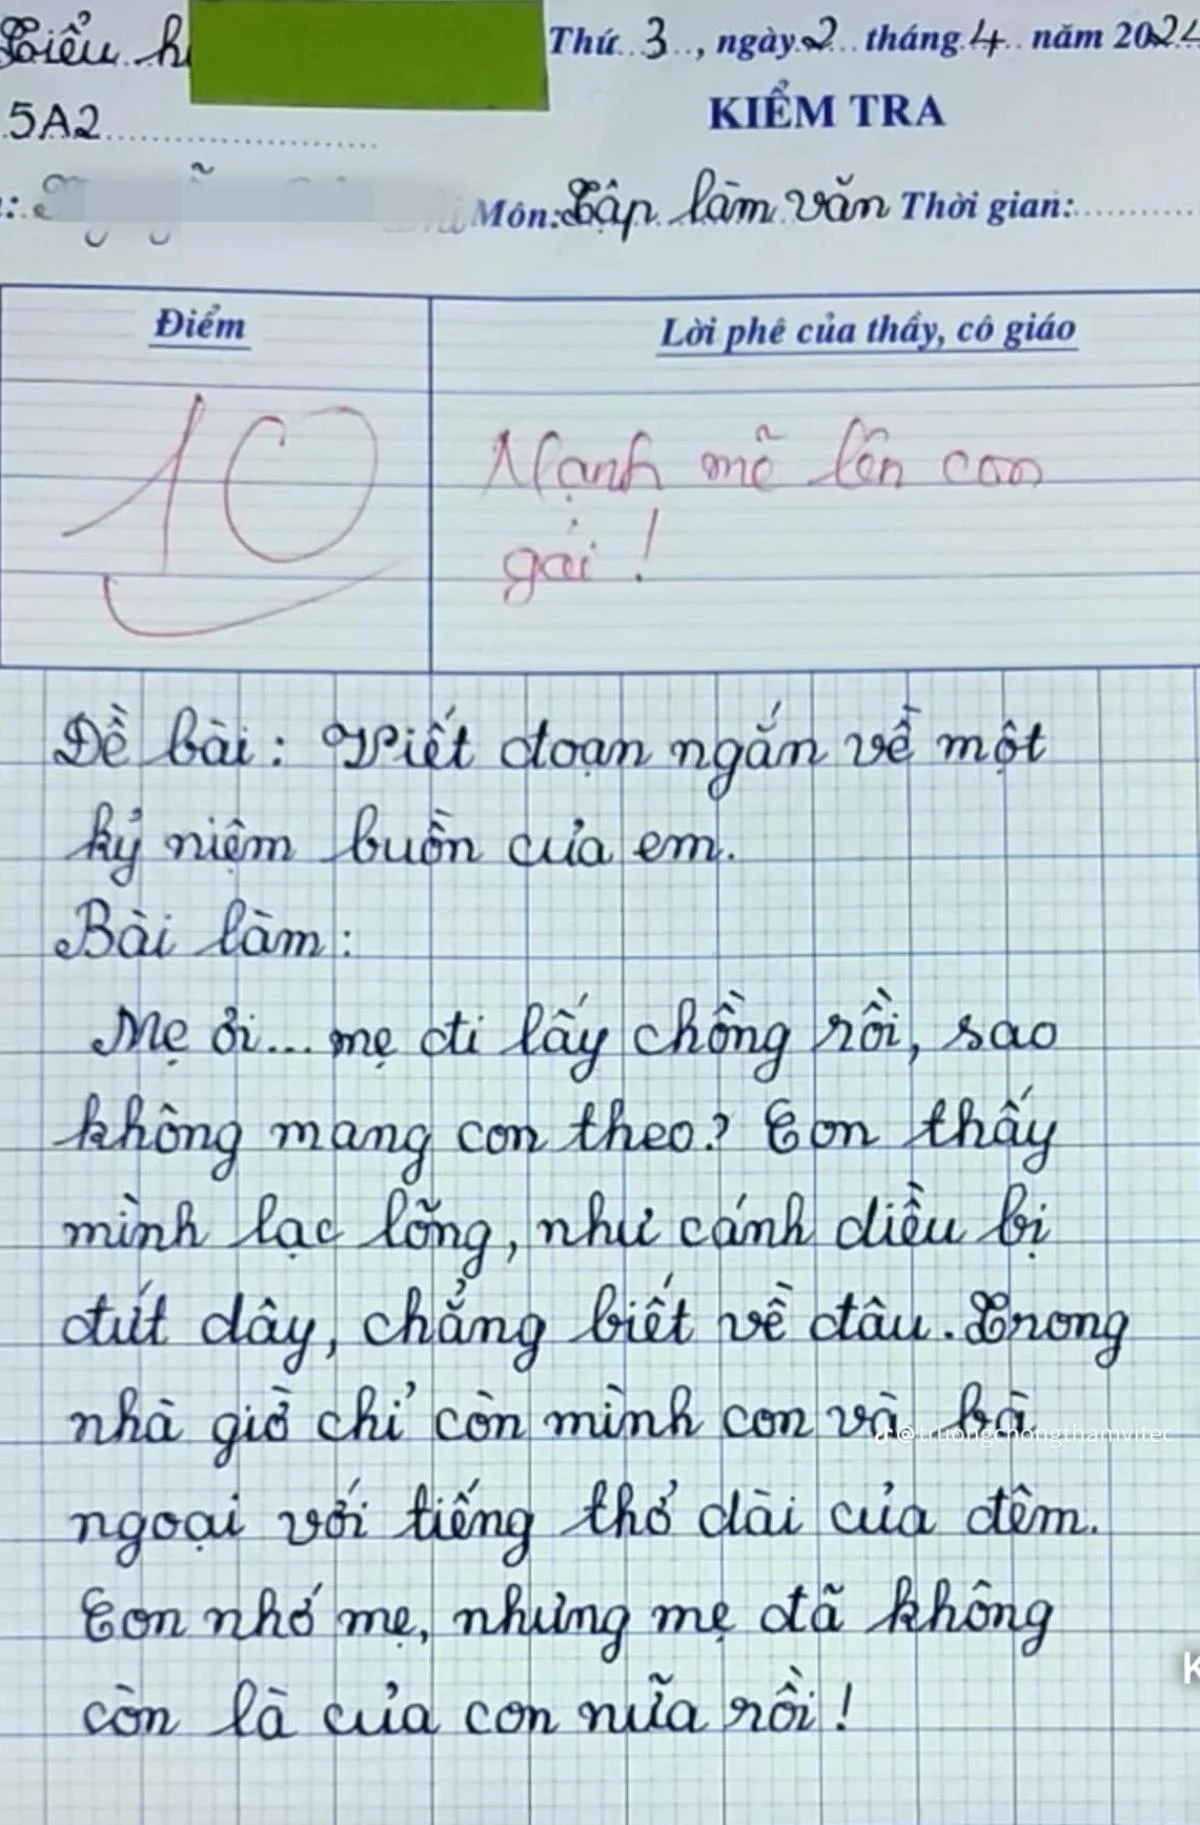 Tiểu h
Thứ 3, ngày 2 tháng 4 năm 2024
5A2
KIỂM TRA
Môn: Tập làm văn Thời gian:
Điểm
Lời phê của thầy, cô giáo
10
Mạnh mẽ lên con
gái!
Đề bài: Viết đoạn ngắn về một
kỷ niệm buồn của em.
Bài làm:
Mẹ ơi... mẹ đi lấy chồng rồi, sao
không mang con theo? Con thấy
mình lạc lõng, như cánh diều bị
đứt dây, chẳng biết về đâu. Trong
nhà giờ chỉ còn mình con và bà
@truongchongthamvitec
ngoại với tiếng thở dài của đêm.
Con nhớ mẹ, nhưng mẹ đã không
K
còn là của con nữa rồi!